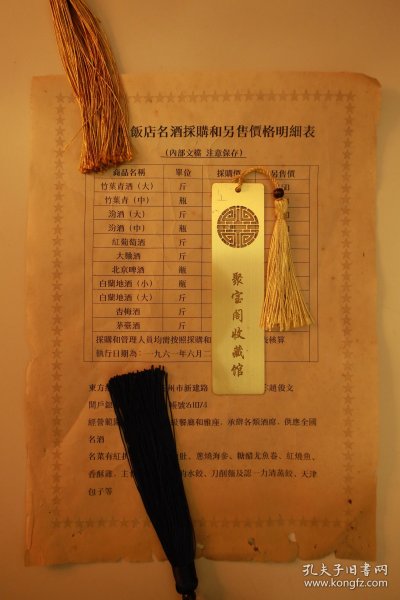 飯店名酒採購和另售價格明細表
(內部文檔 注意保存)
商品名稱 單位 採購價 另售價
竹葉青酒(大) 斤
竹葉青(中) 瓶
汾酒(大) 斤
汾酒(中) 瓶
紅葡萄酒 斤
大麯酒 斤
北京啤酒 瓶
白蘭地酒(小) 瓶
白蘭地酒(大) 斤
杏梅酒 斤
茅臺酒 斤
採購和管理人員均需按照採購和 核算
執行日期為:一九六一年六月二
東方 州市新建路 趙俊文
開戶銀 帳號61074
經營範圍 級餐廳和雅座,承辦各類酒席,供應全國
名酒
名菜有紅 肚、蔥燒海參、糖醋尤魚卷、紅燒魚、
香酥雞,主 的水餃、刀削麵及認一力清蒸餃、天津
包子等
聚宝阁收藏馆
孔夫子旧书网
www.kongfz.com